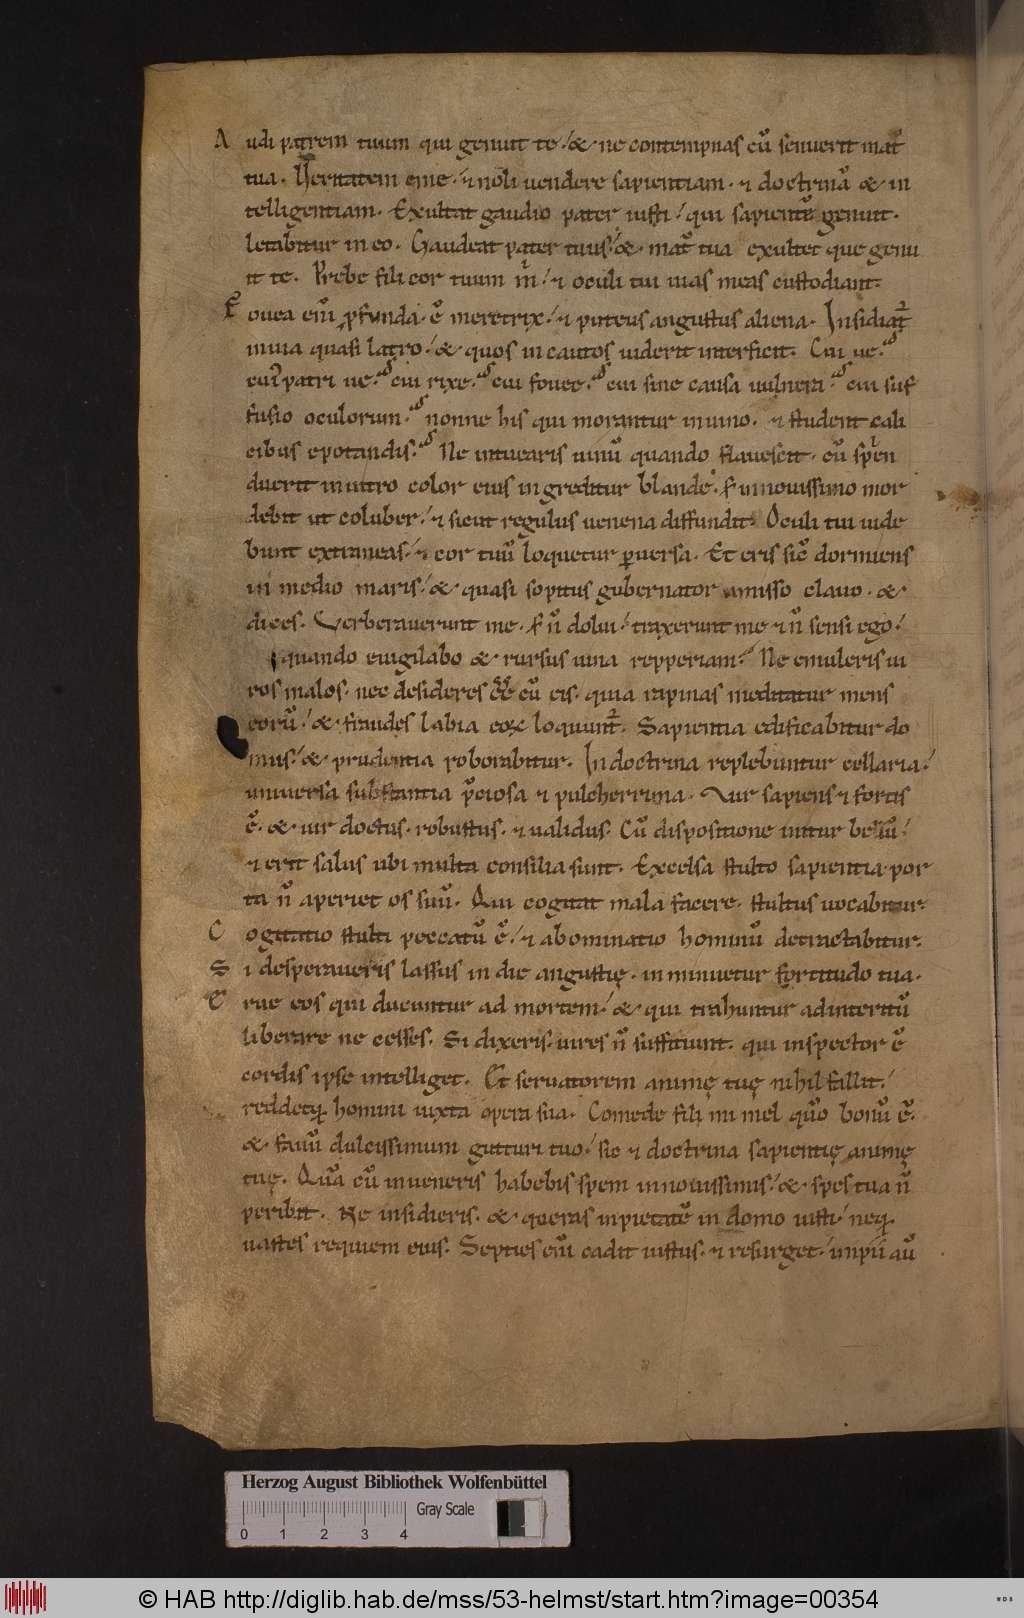 Audi patrem tuum qui genuit te. & ne contempnas cū senuerit mat̄
tua. Veritatem eme. ⁊ noli vendere sapientiam. ⁊ doctrinā & in
telligentiam. Exultat gaudio pater iusti. qui sapientē genuit.
letabitur in eo. Gaudeat pater tuus. & mat̄ tua exultet que genu
it te. Prebe fili cor tuum m̄. ⁊ oculi tui uias meas custodiant.
Fouea enī p̄funda. ē meretrix. ⁊ puteus angustus aliena. Insidiat̄
in uia quasi latro. & quos in cautos uiderit interficit. Cui ue.
cui patri ue. cui rixe. cui fouee. cui sine causa uulnera. cui suf
fusio oculorum. nonne his qui morantur in uino. ⁊ student cali
cibus epotandis. Ne intuearis uinū quando flauescit. cū splen
duerit in uitro color eius ingreditur blande. s; in nouissimo mor
debit ut coluber. ⁊ sicut regulus uenena diffundit. Oculi tui uide
bunt extraneas. ⁊ cor tuū loquetur puersa. Et eris sic̄ dormiens
in medio maris. & quasi sopitus gubernator amisso clauo. &
dices. Verberauerunt me. s; n̄ dolui. traxerunt me ⁊ n̄ sensi ego.
quando euigilabo & rursus uina repperiam. Ne emuleris ui
ros malos. nec desideres ēē cū eis. quia rapinas meditatur mens
eorū. & fraudes labia eoꝝ loquunt̄. Sapientia edificabitur do
mus. & prudentia roborabitur. In doctrina replebuntur cellaria.
uniuersa substantia p̄ciosa ⁊ pulcherrima. Vir sapiens ⁊ fortis
ē. & uir doctus. robustus. ⁊ ualidus. Cū dispositione initur bellū.
⁊ erit salus ubi multa consilia sunt. Excelsa stulto sapientia. por
ta n̄ aperiet os suū. Qui cogitat mala facere. stultus uocabitur.
Cogitatio stulti peccatū ē. ⁊ abominatio hominū detractabitur.
Si desperaueris lassus in die angustię. in minuetur fortitudo tua.
Erue eos qui ducuntur ad mortem. & qui trahuntur ad interitū
liberare ne cesses. Si dixeris. uires n̄ suffitiunt. qui inspector ē
cordis ipse intelliget. Et seruatorem animę tuę nihil fallit.
reddetq; homini iuxta opera sua. Comede fili mi mel quō bonū ē.
& fauū dulcissimum gutturi tuo. sic ⁊ doctrina sapientię animę
tuę. Quā cū inueneris habebis spem in nouissimis. & spes tua n̄
peribit. Ne insidieris. & queras inpietatē in domo iusti. neq;
uastes requiem eius. Septies enī cadit iustus. ⁊ resurget. impii aū
Herzog August Bibliothek Wolfenbüttel
Gray Scale
0 1 2 3 4
© HAB http://diglib.hab.de/mss/53-helmst/start.htm?image=00354